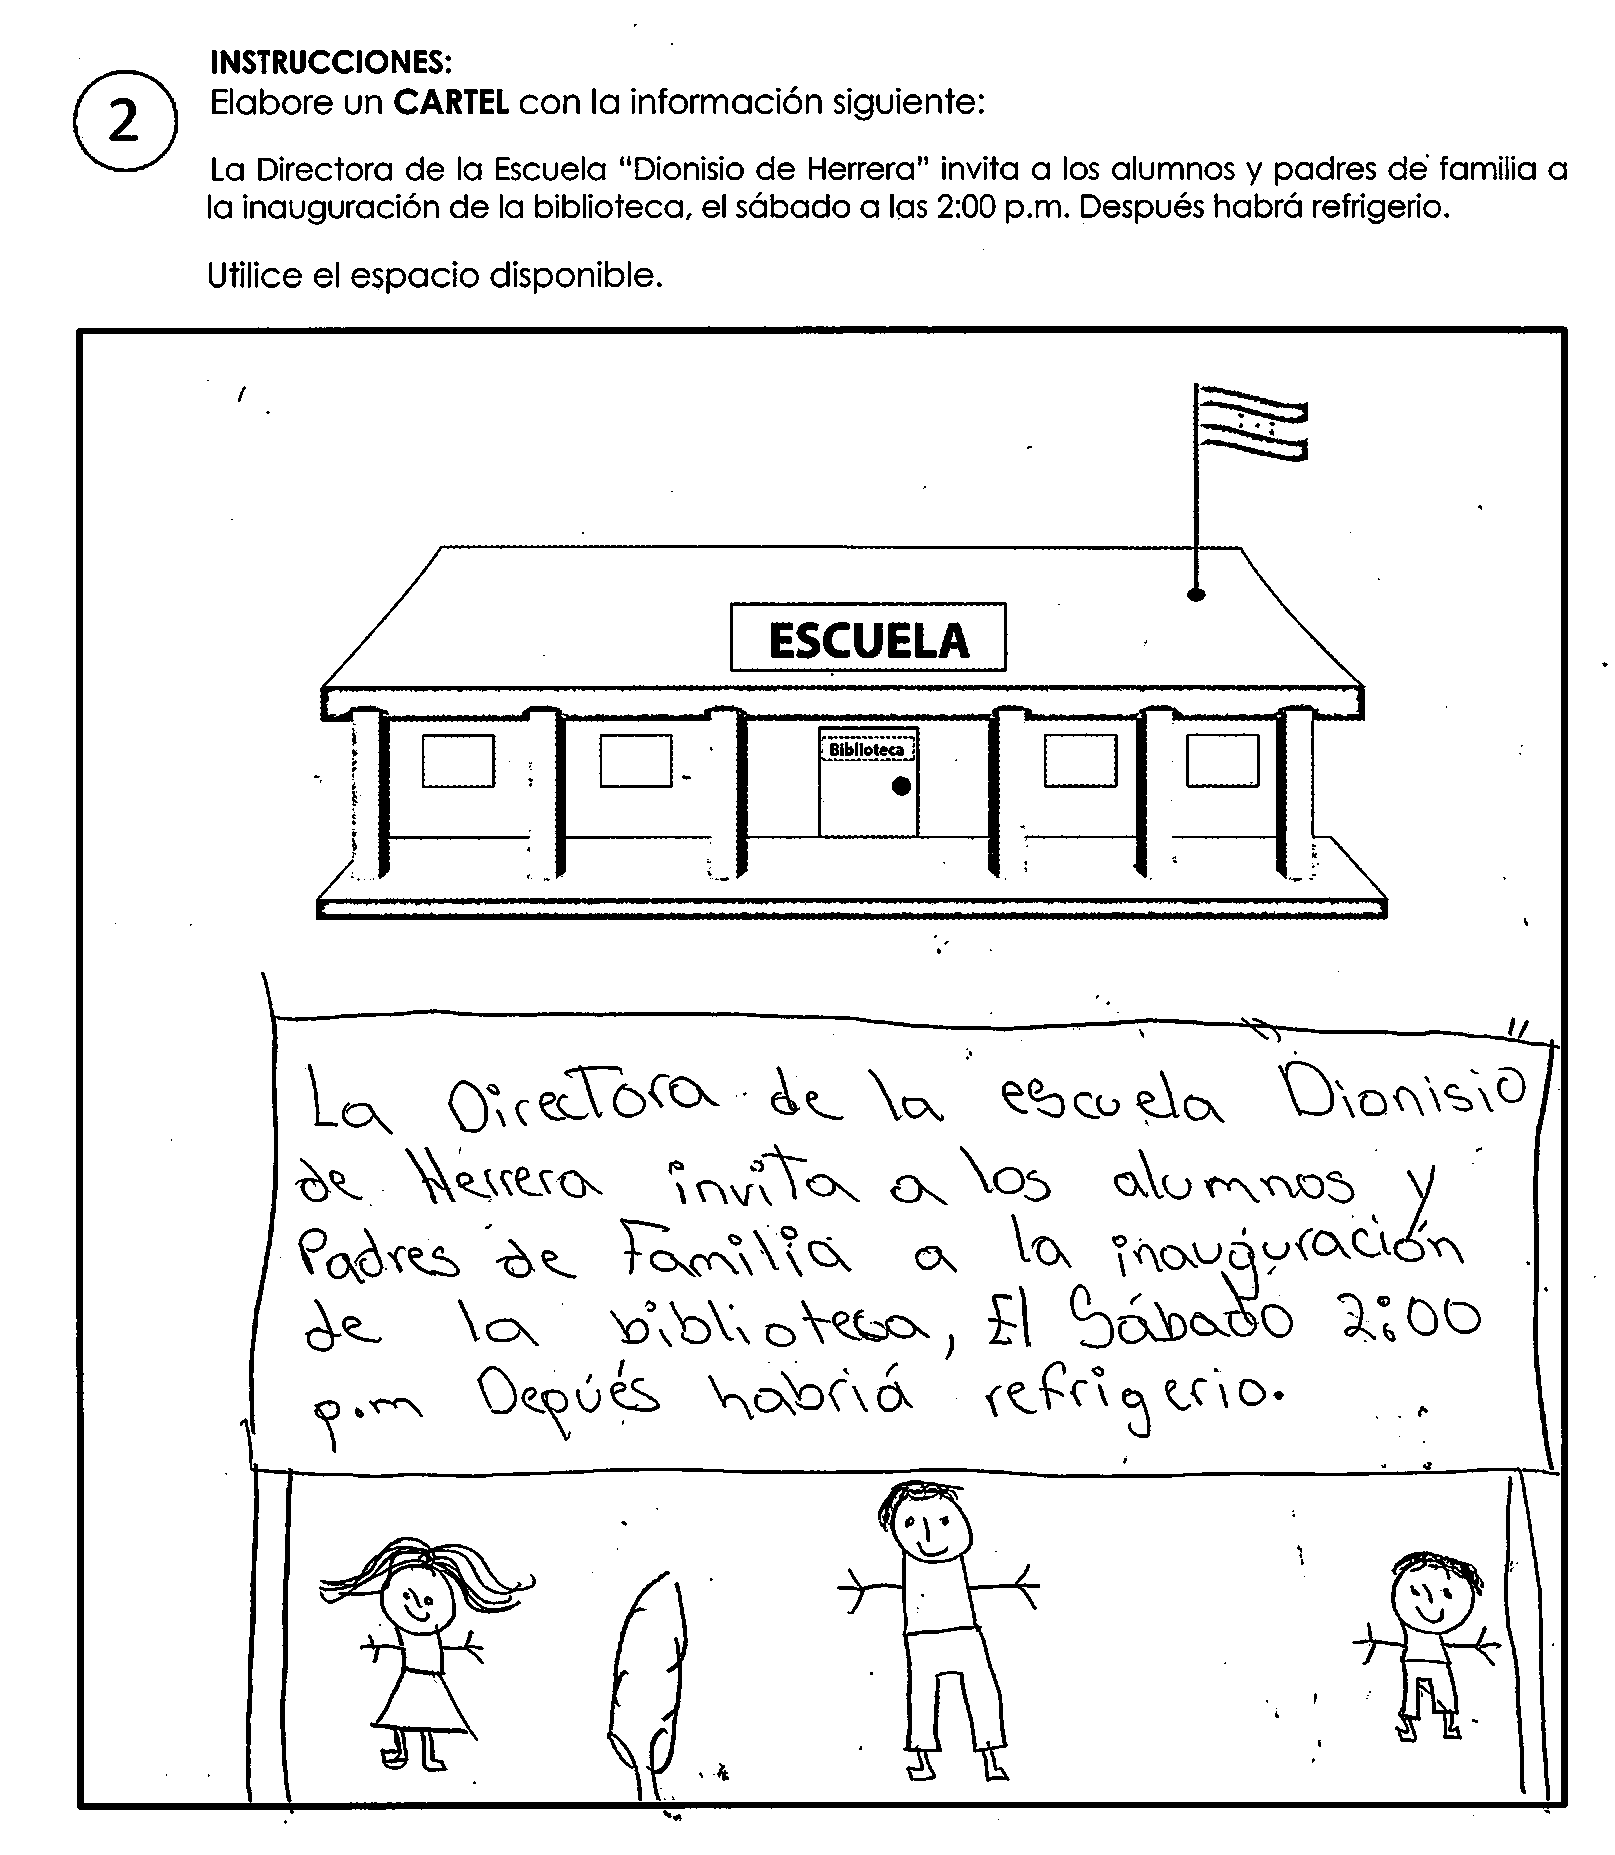 INSTRUCCIONES:
2
Elabore un CARTEL con la información siguiente:
La Directora de la Escuela “Dionisio de Herrera” invita a los alumnos y padres de familia a
la inauguración de la biblioteca, el sábado a las 2:00 p.m. Después habrá refrigerio.
Utilice el espacio disponible.
ESCUELA
Biblioteca
La Directora de la escuela "Dionisio"
de Herrera invita a los alumnos y
Padres de Familia a la inauguración
de la biblioteca, El Sábado 2:00
p.m Depúés habriá refrigerio.